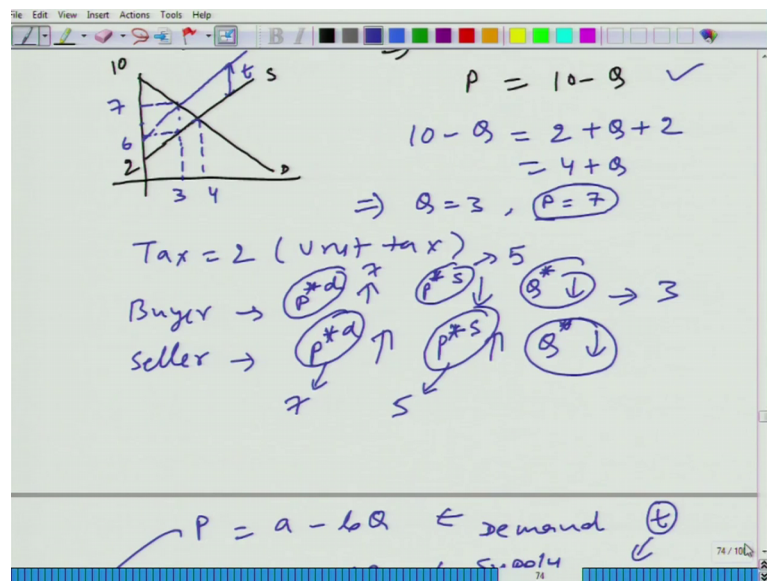 File Edit View Insert Actions Tools Help
B I
10
t S
7
6
2
3 4
D
P = 10 - Q ✓
10 - Q = 2 + Q + 2
= 4 + Q
⇒ Q = 3 , P = 7
Tax = 2 (Unit tax)
Buyer → P*d ↑ 7 P*s ↓ → 5 Q* ↓ → 3
Seller → P*d ↑ P*s ↑ Q* ↓
7 5
P = a - bQ ← Demand t
74 / 10
74